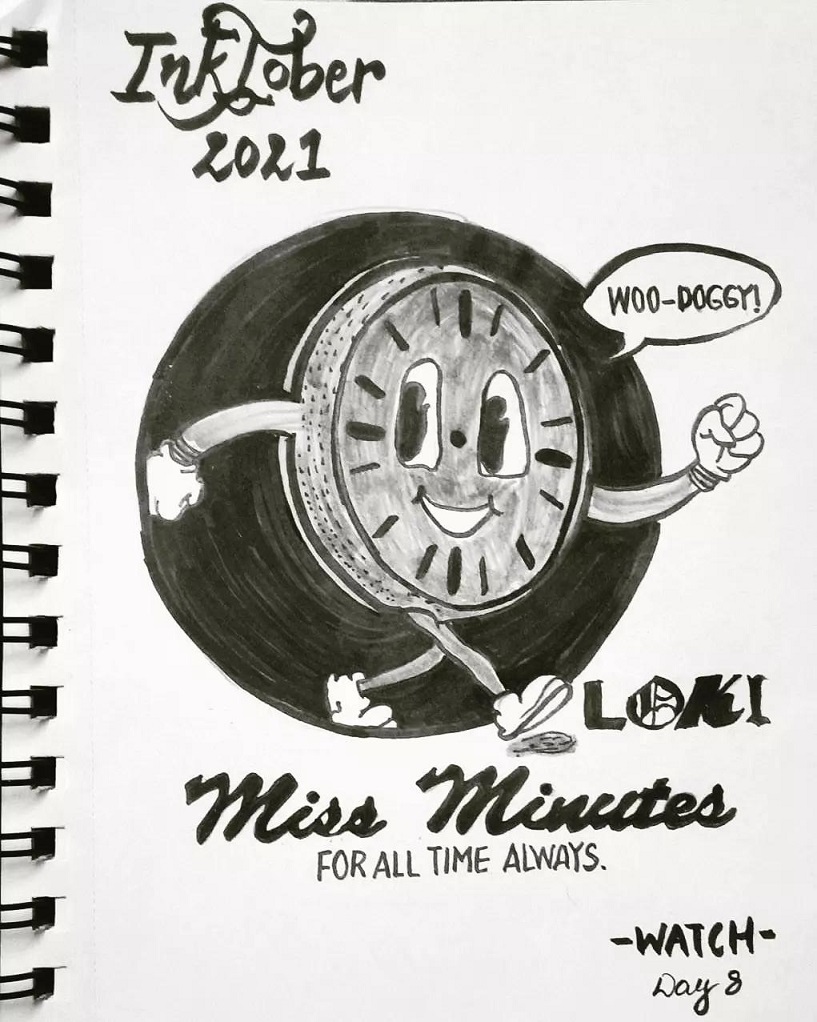 InkTober
2021
WOO-DOGGY!
LOKI
Miss Minutes
FOR ALL TIME ALWAYS.
-WATCH-
Day 8